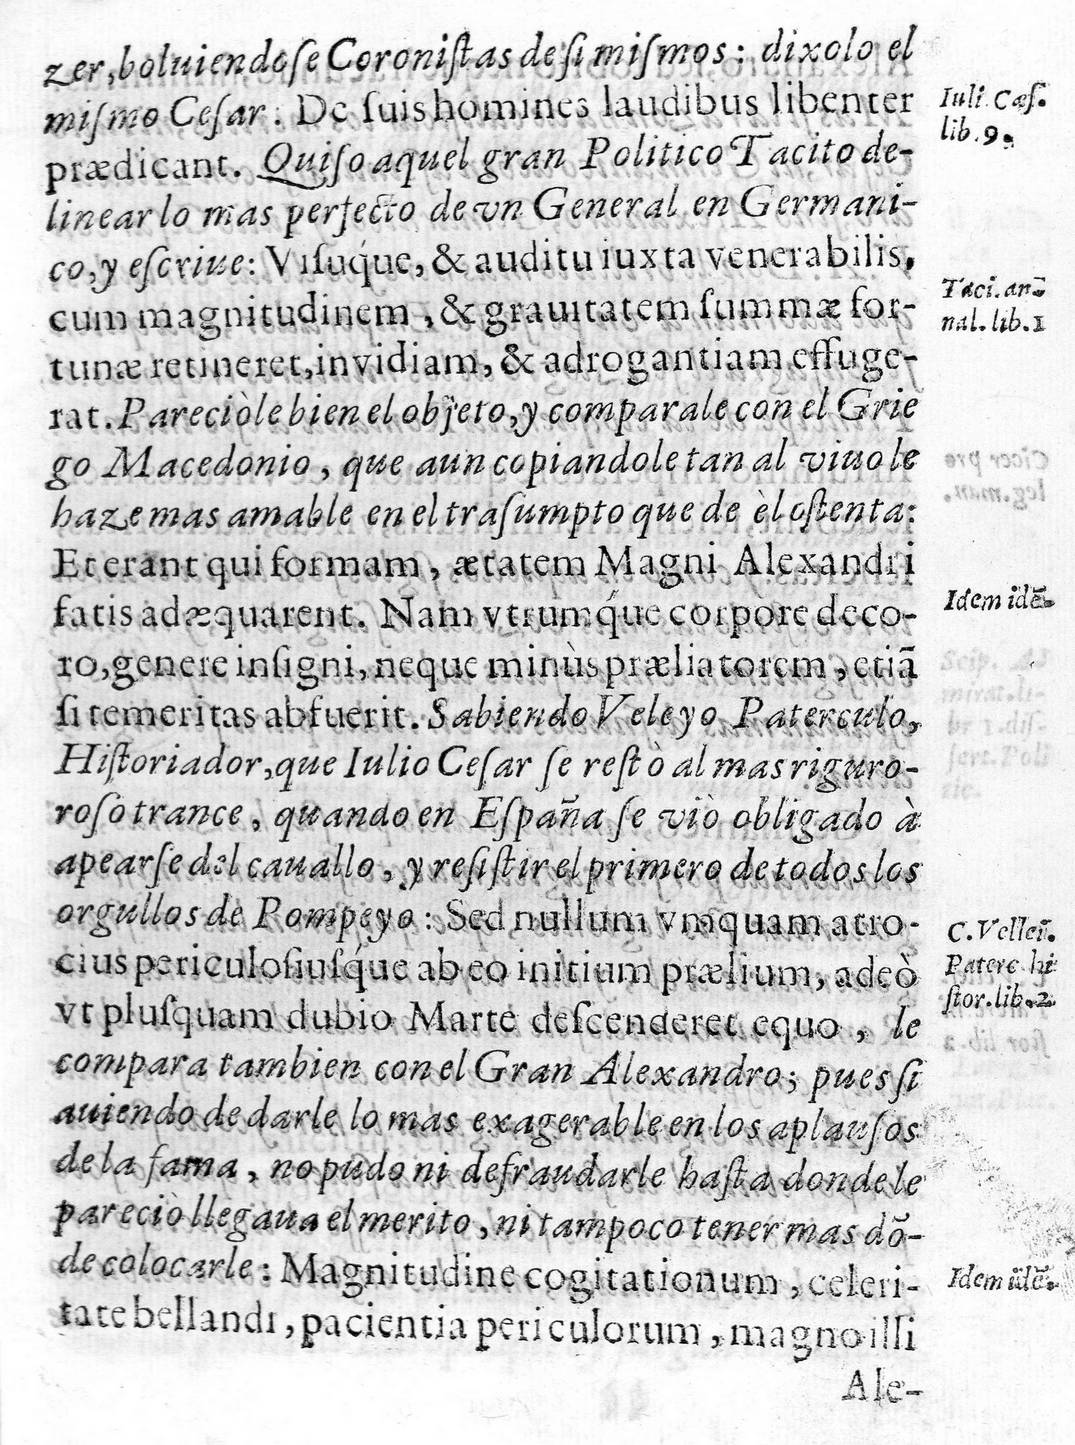 zer, boluiendose Coronistas de si mismos: dixolo el
mismo Cesar: De suis homines laudibus libenter
prædicant. Quiso aquel gran Politico Tacito de-
linear lo mas perfecto de vn General en Germani-
co, y escriue: Visuq́ue, & auditu iuxta venerabilis,
cum magnitudinem, & grauitatem summæ for-
tunæ retineret, invidiam, & adrogantiam effuge-
rat. Pareciòle bien el objeto, y comparale con el Grie
go Macedonio, que aun copiandole tan al viuo le
haze mas amable en el trasumpto que de èl ostenta:
Et erant qui formam, ætatem Magni Alexandri
fatis adæquarent. Nam vtrumq́ue corpore deco-
ro, genere insigni, neque minùs præliatorem, etiã
si temeritas abfuerit. Sabiendo Veleyo Paterculo,
Historiador, que Iulio Cesar se restò al mas riguro-
roso trance, quando en España se viò obligado à
apearse del cauallo, y resistir el primero de todos los
orgullos de Pompeyo: Sed nullum vmquam atro-
cius periculosiusq́ue ab eo initium prælium, adeò
vt plusquam dubio Marte descenderet equo, le
compara tambien con el Gran Alexandro; pues si
auiendo de darle lo mas exagerable en los aplausos
de la fama, no pudo ni defraudarle hasta donde le
pareciò llegaua el merito, ni tampoco tener mas dõ-
de colocarle: Magnitudine cogitationum, celeri-
tate bellandi, pacientia periculorum, magno illi
Ale-
Iuli Cæs.
lib. 9.
Taci. an-
nal. lib. 1
Idem idẽ.
C. Vellei.
Paterc hi
stor. lib. 2.
Idem idẽ.